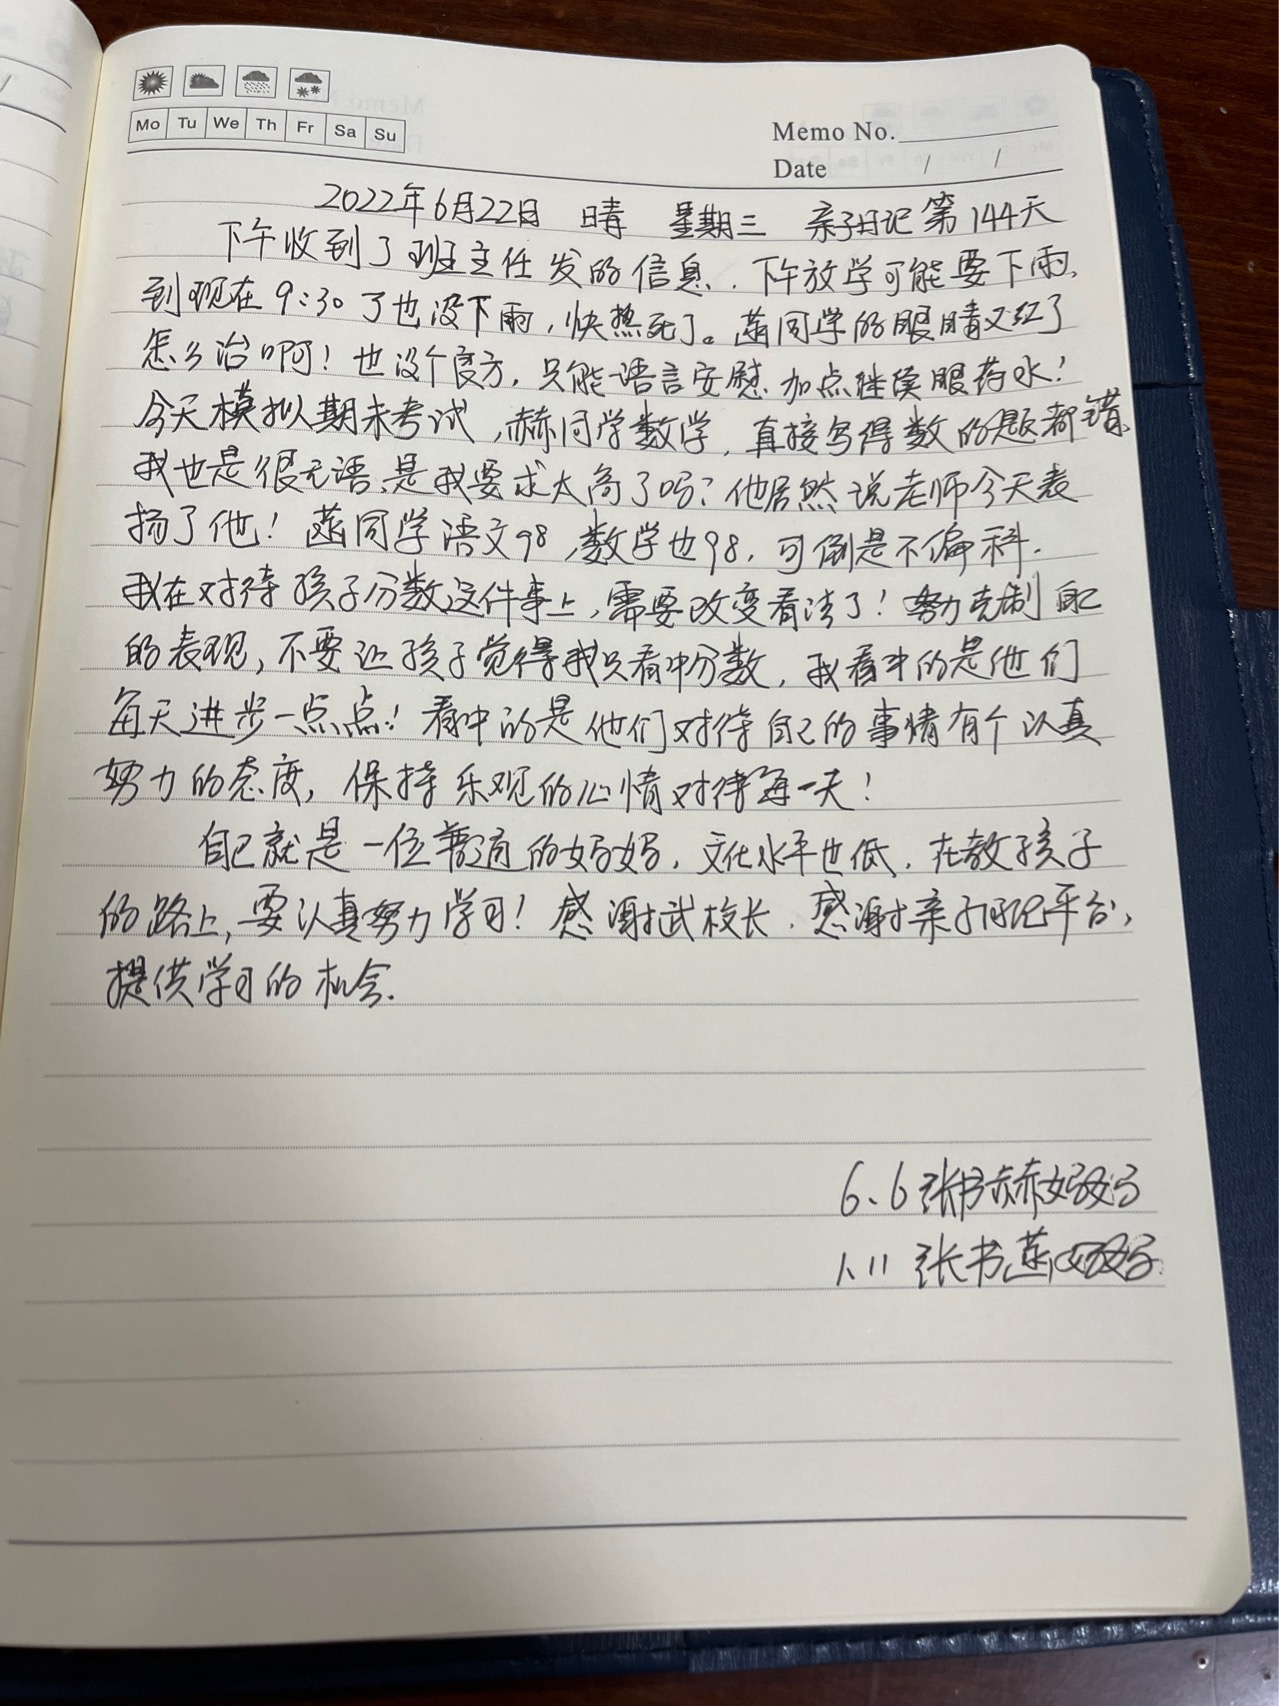 Mo Tu We Th Fr Sa Su
Memo No.
Date / /
2022年6月22日 晴 星期三 亲子日记第144天
下午收到了班主任发的信息，下午放学可能要下雨，
到现在9:30了也没下雨，快热死了。菡同学的眼睛又红了
怎么治啊！也没个良方，只能语言安慰加点继续眼药水！
今天模拟期末考试，赫同学数学，直接写得数的题都错
我也是很无语，是我要求太高了吗？他居然说老师今天表
扬了他！菡同学语文98，数学也98，可倒是不偏科．
我在对待孩子分数这件事上，需要改变看法了！努力克制自己
的表现，不要让孩子觉得我只看中分数，我看中的是他们
每天进步一点点！看中的是他们对待自己的事情有个认真
努力的态度，保持乐观的心情对待每一天！
自己就是一位普通的妈妈，文化水平也低，在教孩子
的路上，要认真努力学习！感谢武校长，感谢亲子日记平台，
提供学习的机会．
6、6 张书赫妈妈
1、11 张书菡妈妈